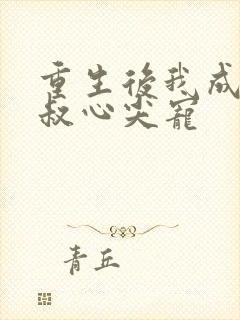 重生後我成
叔心尖寵
青丘